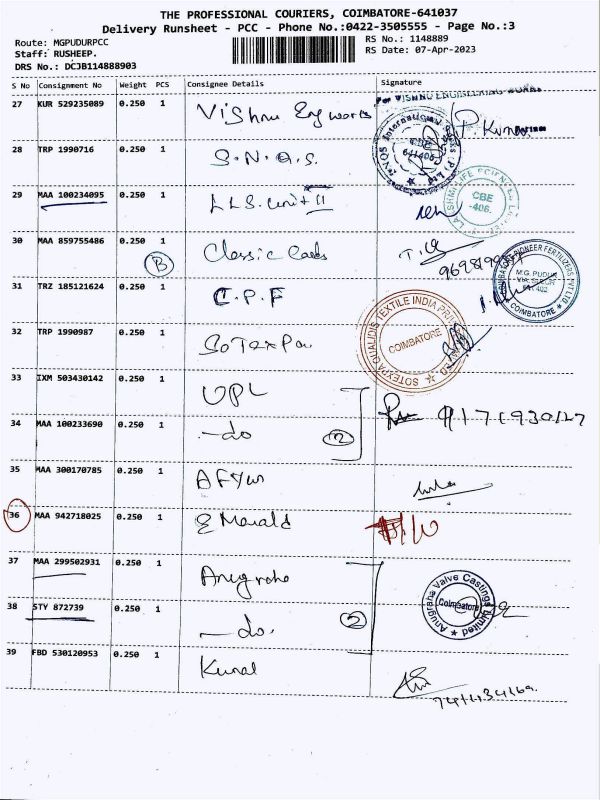 THE PROFESSIONAL COURIERS, COIMBATORE-641037
Delivery Runsheet - PCC - Phone No.:0422-3505555 - Page No.:3
Route: MGPUDURPCC
RS No.: 1148889
Staff: RUSHEEP.
RS Date: 07-Apr-2023
DRS No.: DCJB114888903
S No Consignment No Weight PCS Consignee Details Signature
For VISHNU ENGINEERING WORKS
27 KUR 529235089 0.250 1 Vishnu Eng works P Kumar
Partner
28 TRP 1990716 0.250 1 S.N.Q.S.
SNQS International Socks (P) Ltd
CBE
641406
29 MAA 100234095 0.250 1 LLS. unit II
LAKSHMI LIFE SCIENCES LIMITED
CBE
-406.
30 MAA 859755486 0.250 1 Classic Cards
B
31 TRZ 185121624 0.250 1 C.P.F
COIMBATORE PIONEER FERTILIZERS PVT LTD
M.G. PUDUR
COIMBATORE
32 TRP 1990987 0.250 1 SoTexPa
SOTEXPA QUALIDIS TEXTILE INDIA PRIVATE LIMITED
COIMBATORE
33 IXM 503430142 0.250 1 UPL
34 MAA 100233690 0.250 1 -do 2
35 MAA 300170785 0.250 1
36 MAA 942718025 0.250 1 EMarald
37 MAA 299502931 0.250 1 Anugraha
38 STY 872739 0.250 1 -do. 2
Anugraha Valve Castings Limited
Coimbatore
39 FBD 530120953 0.250 1 Kunal